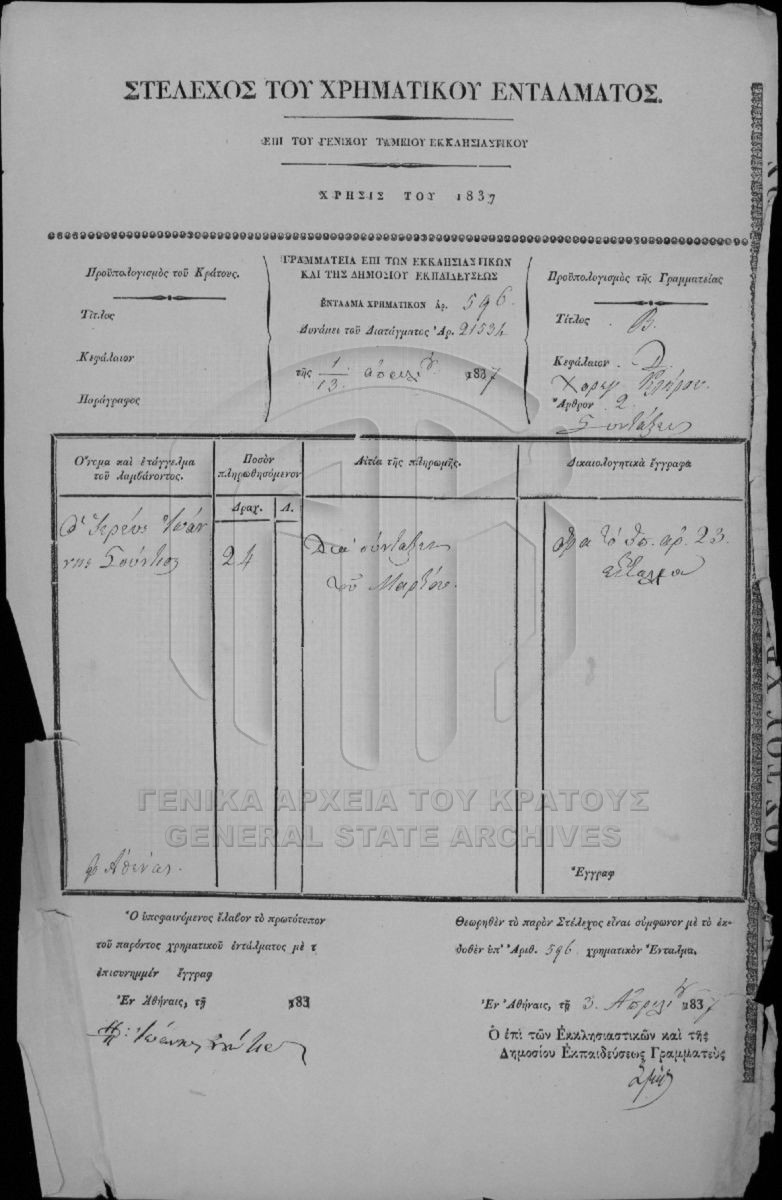 ΣΤΕΛΕΧΟΣ ΤΟΥ ΧΡΗΜΑΤΙΚΟΥ ΕΝΤΑΛΜΑΤΟΣ.
ΕΠΙ ΤΟΥ ΓΕΝΙΚΟΥ ΤΑΜΕΙΟΥ ΕΚΚΛΗΣΙΑΣΤΙΚΟΥ
ΧΡΗΣΙΣ ΤΟΥ 1837
Προϋπολογισμὸς τοῦ Κράτους.
Τίτλος
Κεφάλαιον
Παράγραφος
ΓΡΑΜΜΑΤΕΙΑ ΕΠΙ ΤΩΝ ΕΚΚΛΗΣΙΑΣΤΙΚΩΝ
ΚΑΙ ΤΗΣ ΔΗΜΟΣΙΟΥ ΕΚΠΑΙΔΕΥΣΕΩΣ
ΕΝΤΑΛΜΑ ΧΡΗΜΑΤΙΚΟΝ ἀρ. 596.
Δυνάμει τοῦ Διατάγματος Ἀρ. 21534
τῆς 1/13. ἀπριλίου 1837
Προϋπολογισμὸς τῆς Γραμματείας
Τίτλος . Β.
Κεφάλαιον . Δ.
Χορηγ. Κλήρου.
Ἄρθρον . 2.
Συντάξεις
Ὄνομα καὶ ἐπάγγελμα
τοῦ λαμβάνοντος.
Ποσὸν
πληρωθησόμενον
Δραχ. Λ.
Αἰτία τῆς πληρωμῆς.
Δικαιολογητικὰ ἔγγραφα
Ὁ Ἱερεὺς Ἰωάν
νης 24
Διὰ σύνταξιν
τοῦ Μαρτίου.
τὸ ὑπ. ἀρ. 23.
ἔνταλμα
Ἀθήνας.
Ἔγγραφ
Ὁ ὑποφαινόμενος ἔλαβον τὸ πρωτότυπον
τοῦ παρόντος χρηματικοῦ ἐντάλματος μὲ τ
ἐπισυνημμέν ἔγγραφ
Ἐν Ἀθήναις, τῇ 183
Ἰωάννης
Θεωρηθὲν τὸ παρὸν Στέλεχος εἶναι σύμφωνον μὲ τὸ ἐκ-
δοθὲν ὑπ' Ἀριθ. 596 χρηματικὸν Ἔνταλμα.
Ἐν Ἀθήναις, τῇ 3. Ἀπριλίου 1837
Ὁ ἐπὶ τῶν Ἐκκλησιαστικῶν καὶ τῆς
Δημοσίου Ἐκπαιδεύσεως Γραμματεὺς
ΓΕΝΙΚΑ ΑΡΧΕΙΑ ΤΟΥ ΚΡΑΤΟΥΣ
GENERAL STATE ARCHIVES